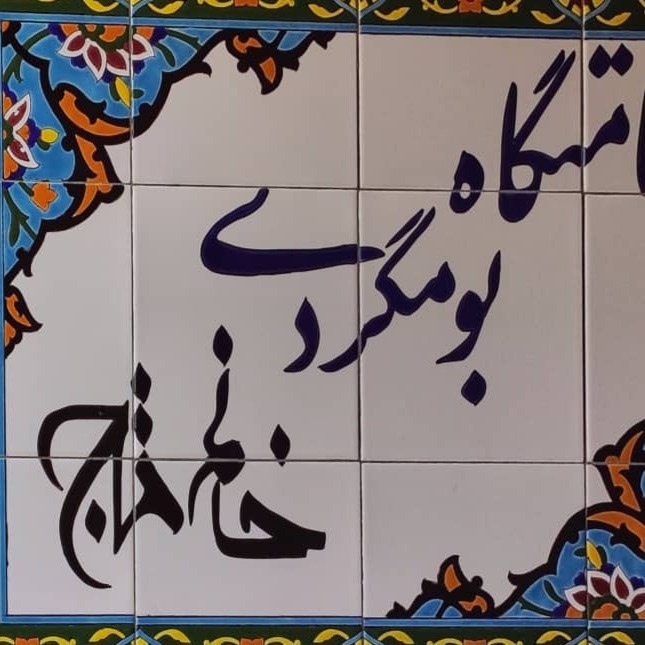 امتگاه
بومگردی
خانم تاج